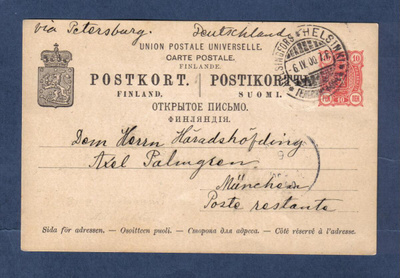 via Petersburg. Deutschland
UNION POSTALE UNIVERSELLE.
CARTE POSTALE.
FINLANDE.
POSTKORT. POSTIKORTTI
FINLAND. SUOMI.
ОТКРЫТОЕ ПИСЬМО.
ФИНЛЯНДІЯ.
HELSINGFORS HELSINKI
6.IV.00
10
Dem Herrn Häradshöfding
Axel Palmgren
München
Poste restante
Sida för adressen. - Osoitteen puoli. - Сторона для адреса. - Côté réservé à l'adresse.